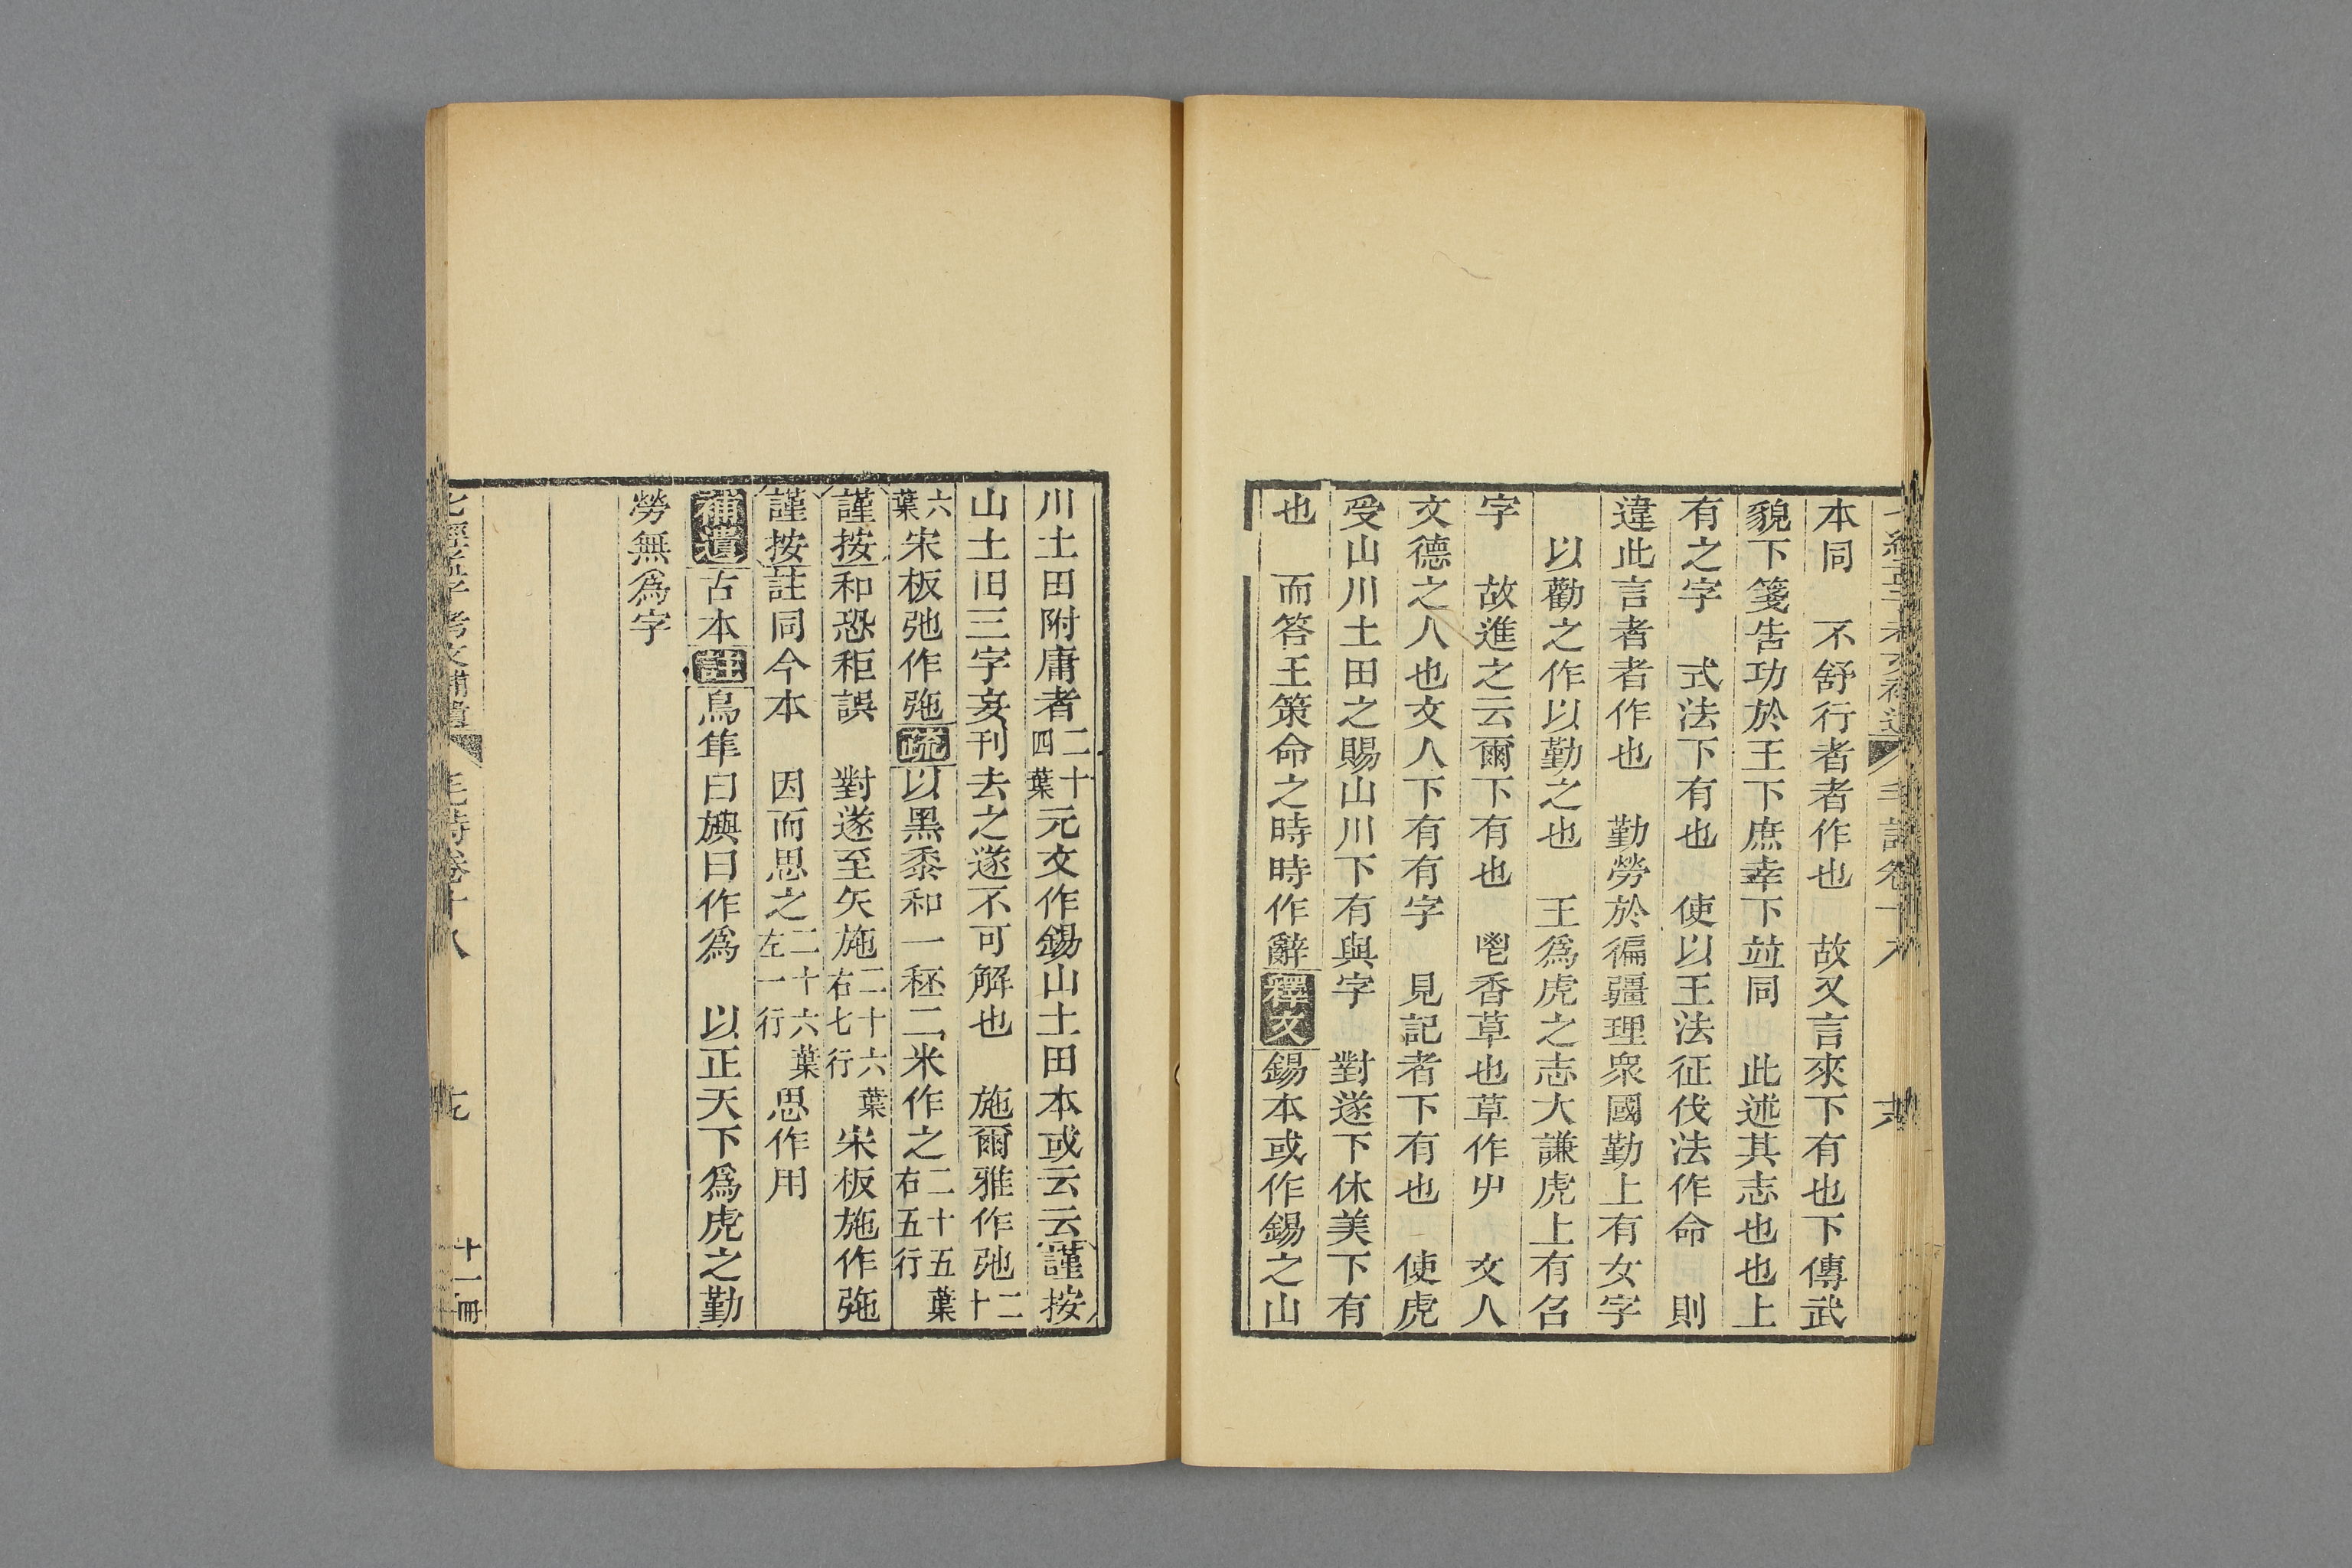 本同　不舒行者者作也　故又言來下有也下傳武
貌下箋告功於王下庶幸下竝同　此述其志也也上
有之字　式法下有也　使以王法征伐法作命　則
違此言者者作也　勤勞於徧疆理衆國勤上有女字
以勸之作以勤之也　王爲虎之志大謙虎上有召
字　故進之云爾下有也　鬯香草也草作屮　文人
文德之人也文人下有有字　見記者下有也　使虎
受山川土田之賜山川下有與字　對遂下休美下有
也　而答王策命之時時作辭釋文錫本或作錫之山
川土田附庸者二十四葉元文作錫山土田本或云云謹按
山土田三字妄刊去之遂不可解也　施爾雅作弛二十
六葉宋板弛作㢮疏以黑黍和一秠二米作之二十五葉右五行
謹按和恐秬誤　對遂至矢施二十六葉右七行宋板施作㢮
謹按註同今本　因而思之二十六葉左一行思作用
補遺古本註鳥隼曰旟曰作爲　以正天下爲虎之勤
勞無爲字
七經孟子考文補遺　毛詩卷十八　十一冊